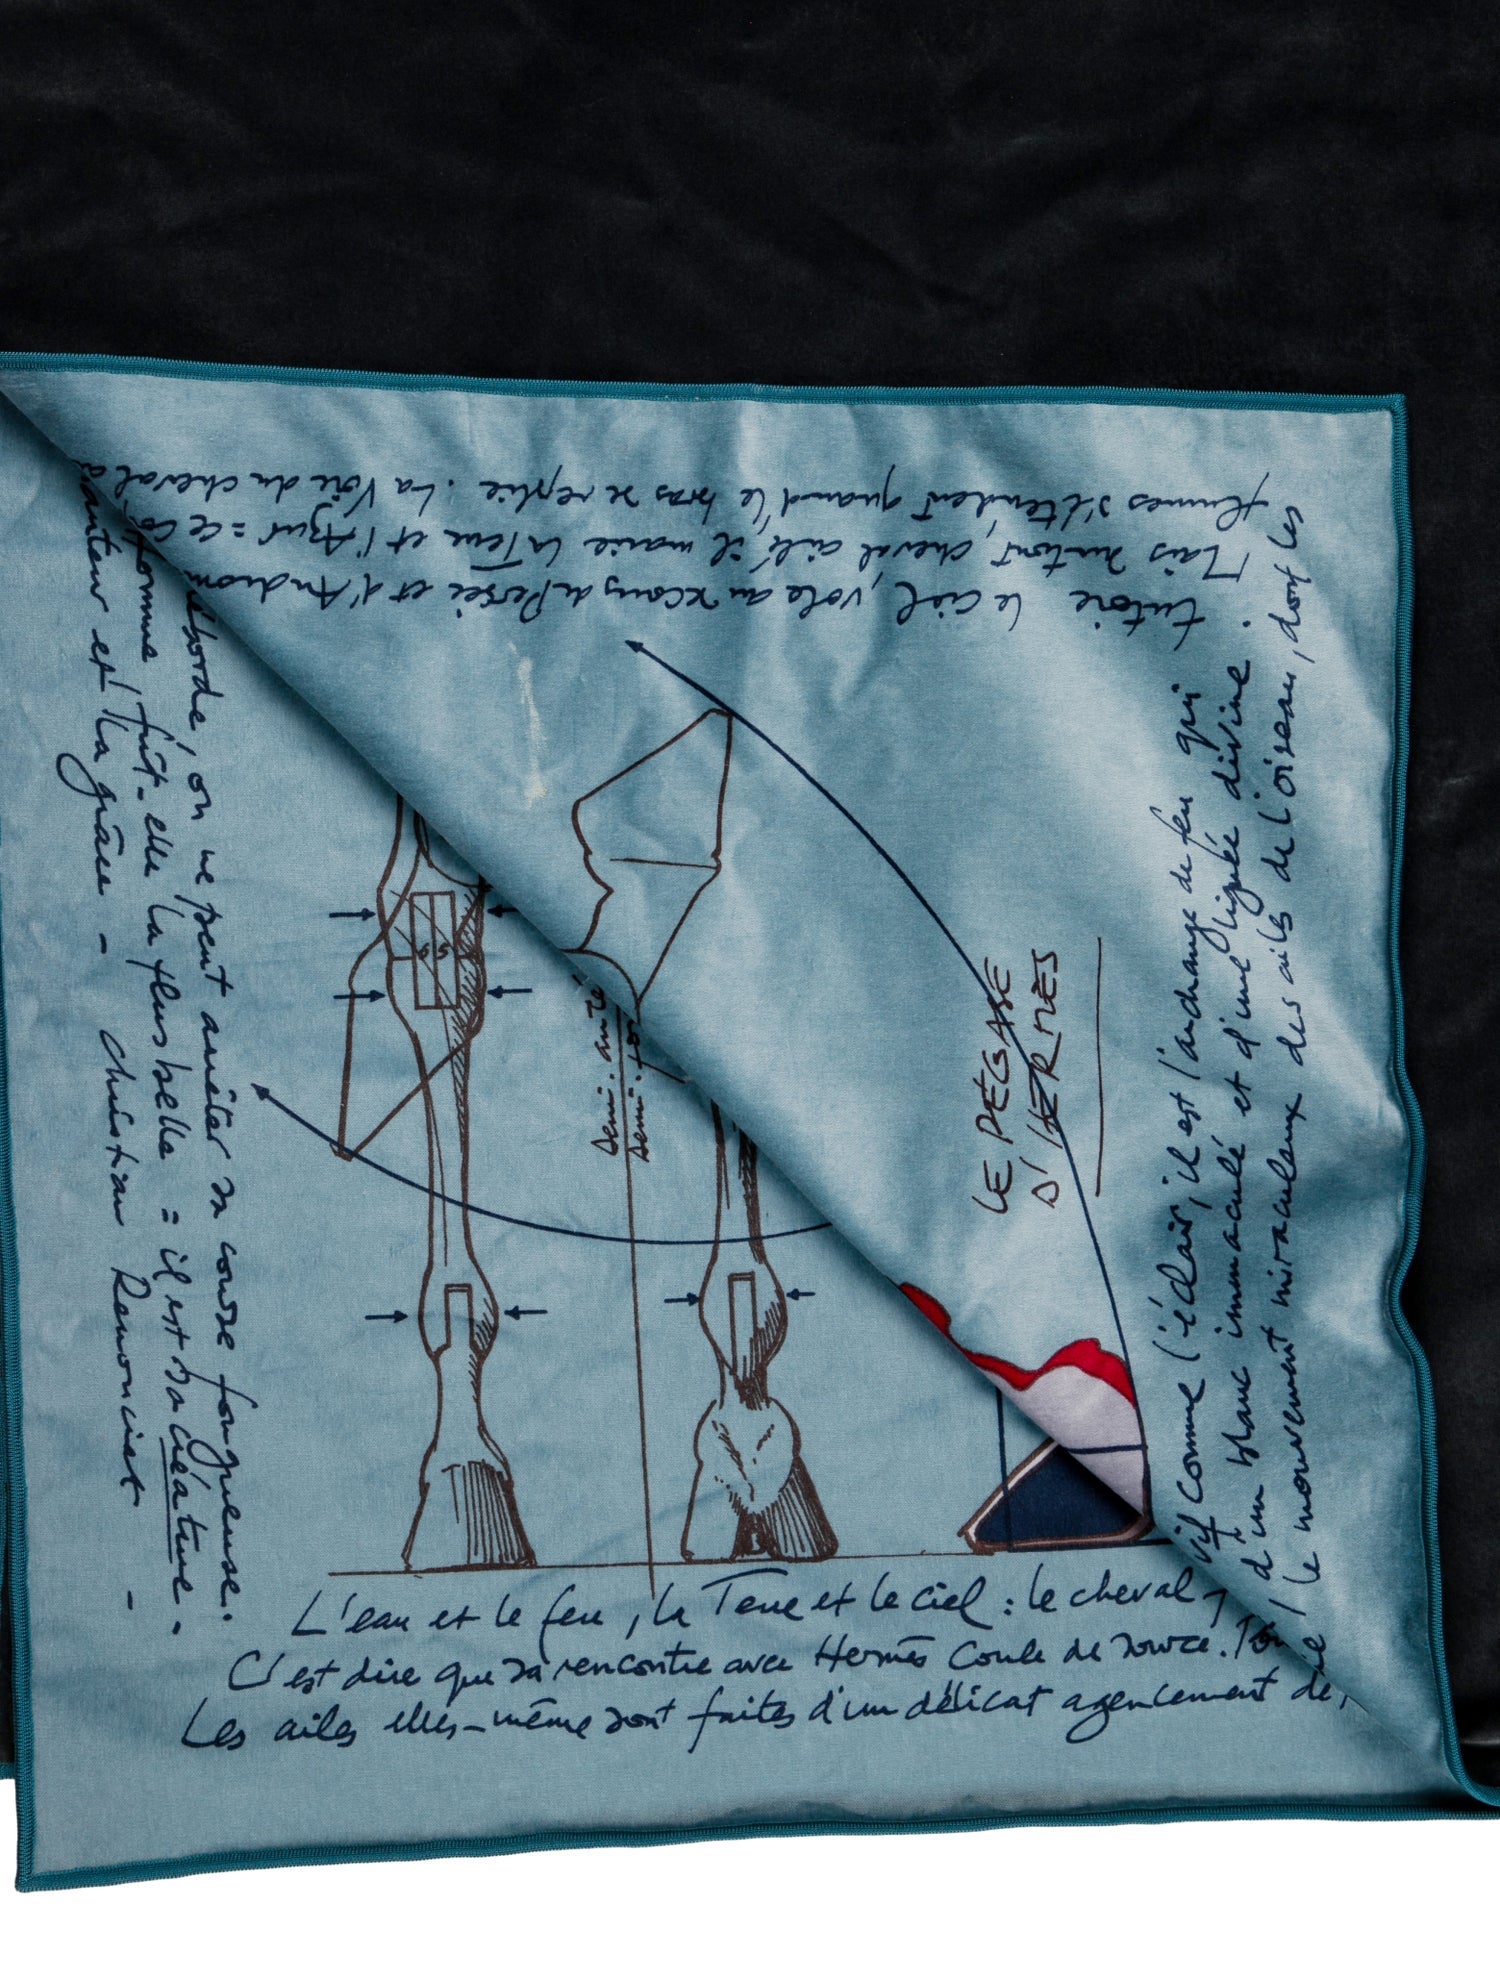 L'eau et le feu, la Terre et le ciel : le cheval
C'est dire que sa rencontre avec Hermès coule de source.
Les ailes elles-même sont faites d'un délicat agencement de
vif comme l'éclair, il est l'archange de feu qui
d'un blanc immaculé et d'une lignée divine.
le mouvement miraculeux des ailes de l'oiseau, dont les
tutoie le ciel, vole au secours de Persée et d'Androm
Mais surtout, cheval ailé, il marie la Terre et l'Azur = ce
plumes s'étendent quand le bras se replie. La Voie du cheval
déborde, on ne peut arrêter sa course fougueuse.
fût-elle la plus belle = il est sa créature.
et la grâce - Christian Renonciat -
LE PÉGASE
D'HERMÈS